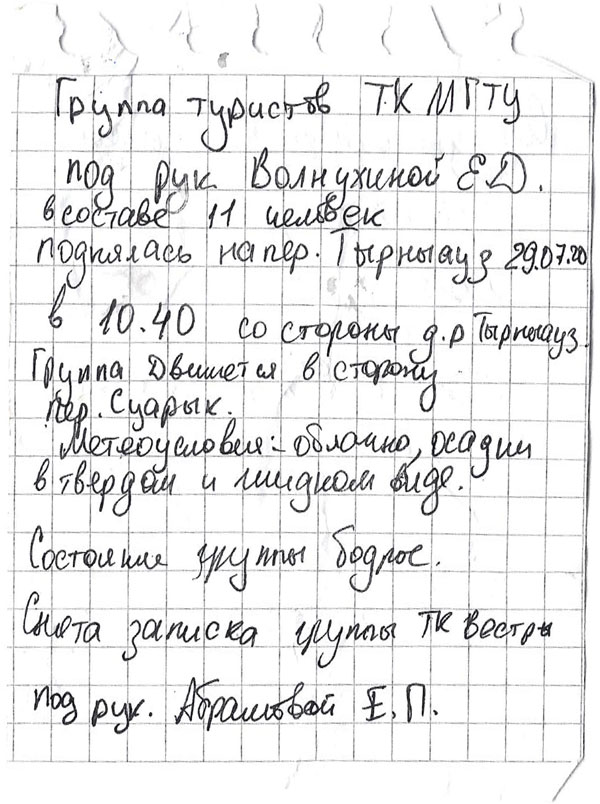 Группа туристов ТК МГТУ
под рук Волнухиной ЕД.
в составе 11 человек
поднялась на пер. Тырныауз 29.07.20
в 10.40 со стороны д.р Тырныауз.
Группа движется в сторону
пер. Суарык.
Метеоусловия:- облачно, осадки
в твердом и жидком виде.
Состояние группы бодрое.
Снята записка группы ТК Вестра
под рук. Абрамовой Е.П.